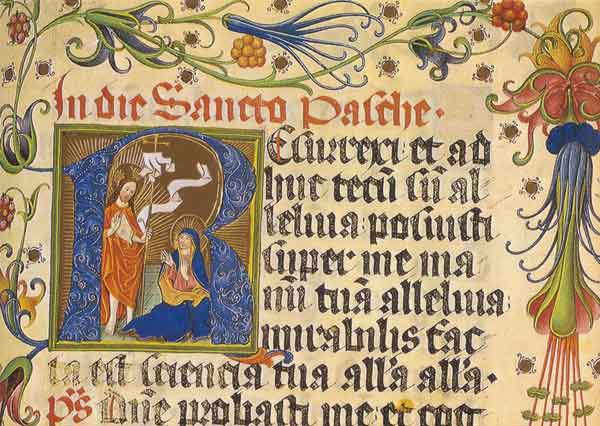 In die Sancto Pasche·
Resurrexi et ad
huc tecū sū al
leluia posuisti
super me ma
nū tuā alleluia:
mirabilis fac
ta est sciencia tua all'a all'a·
p̄s Dn̄e probasti me et cog